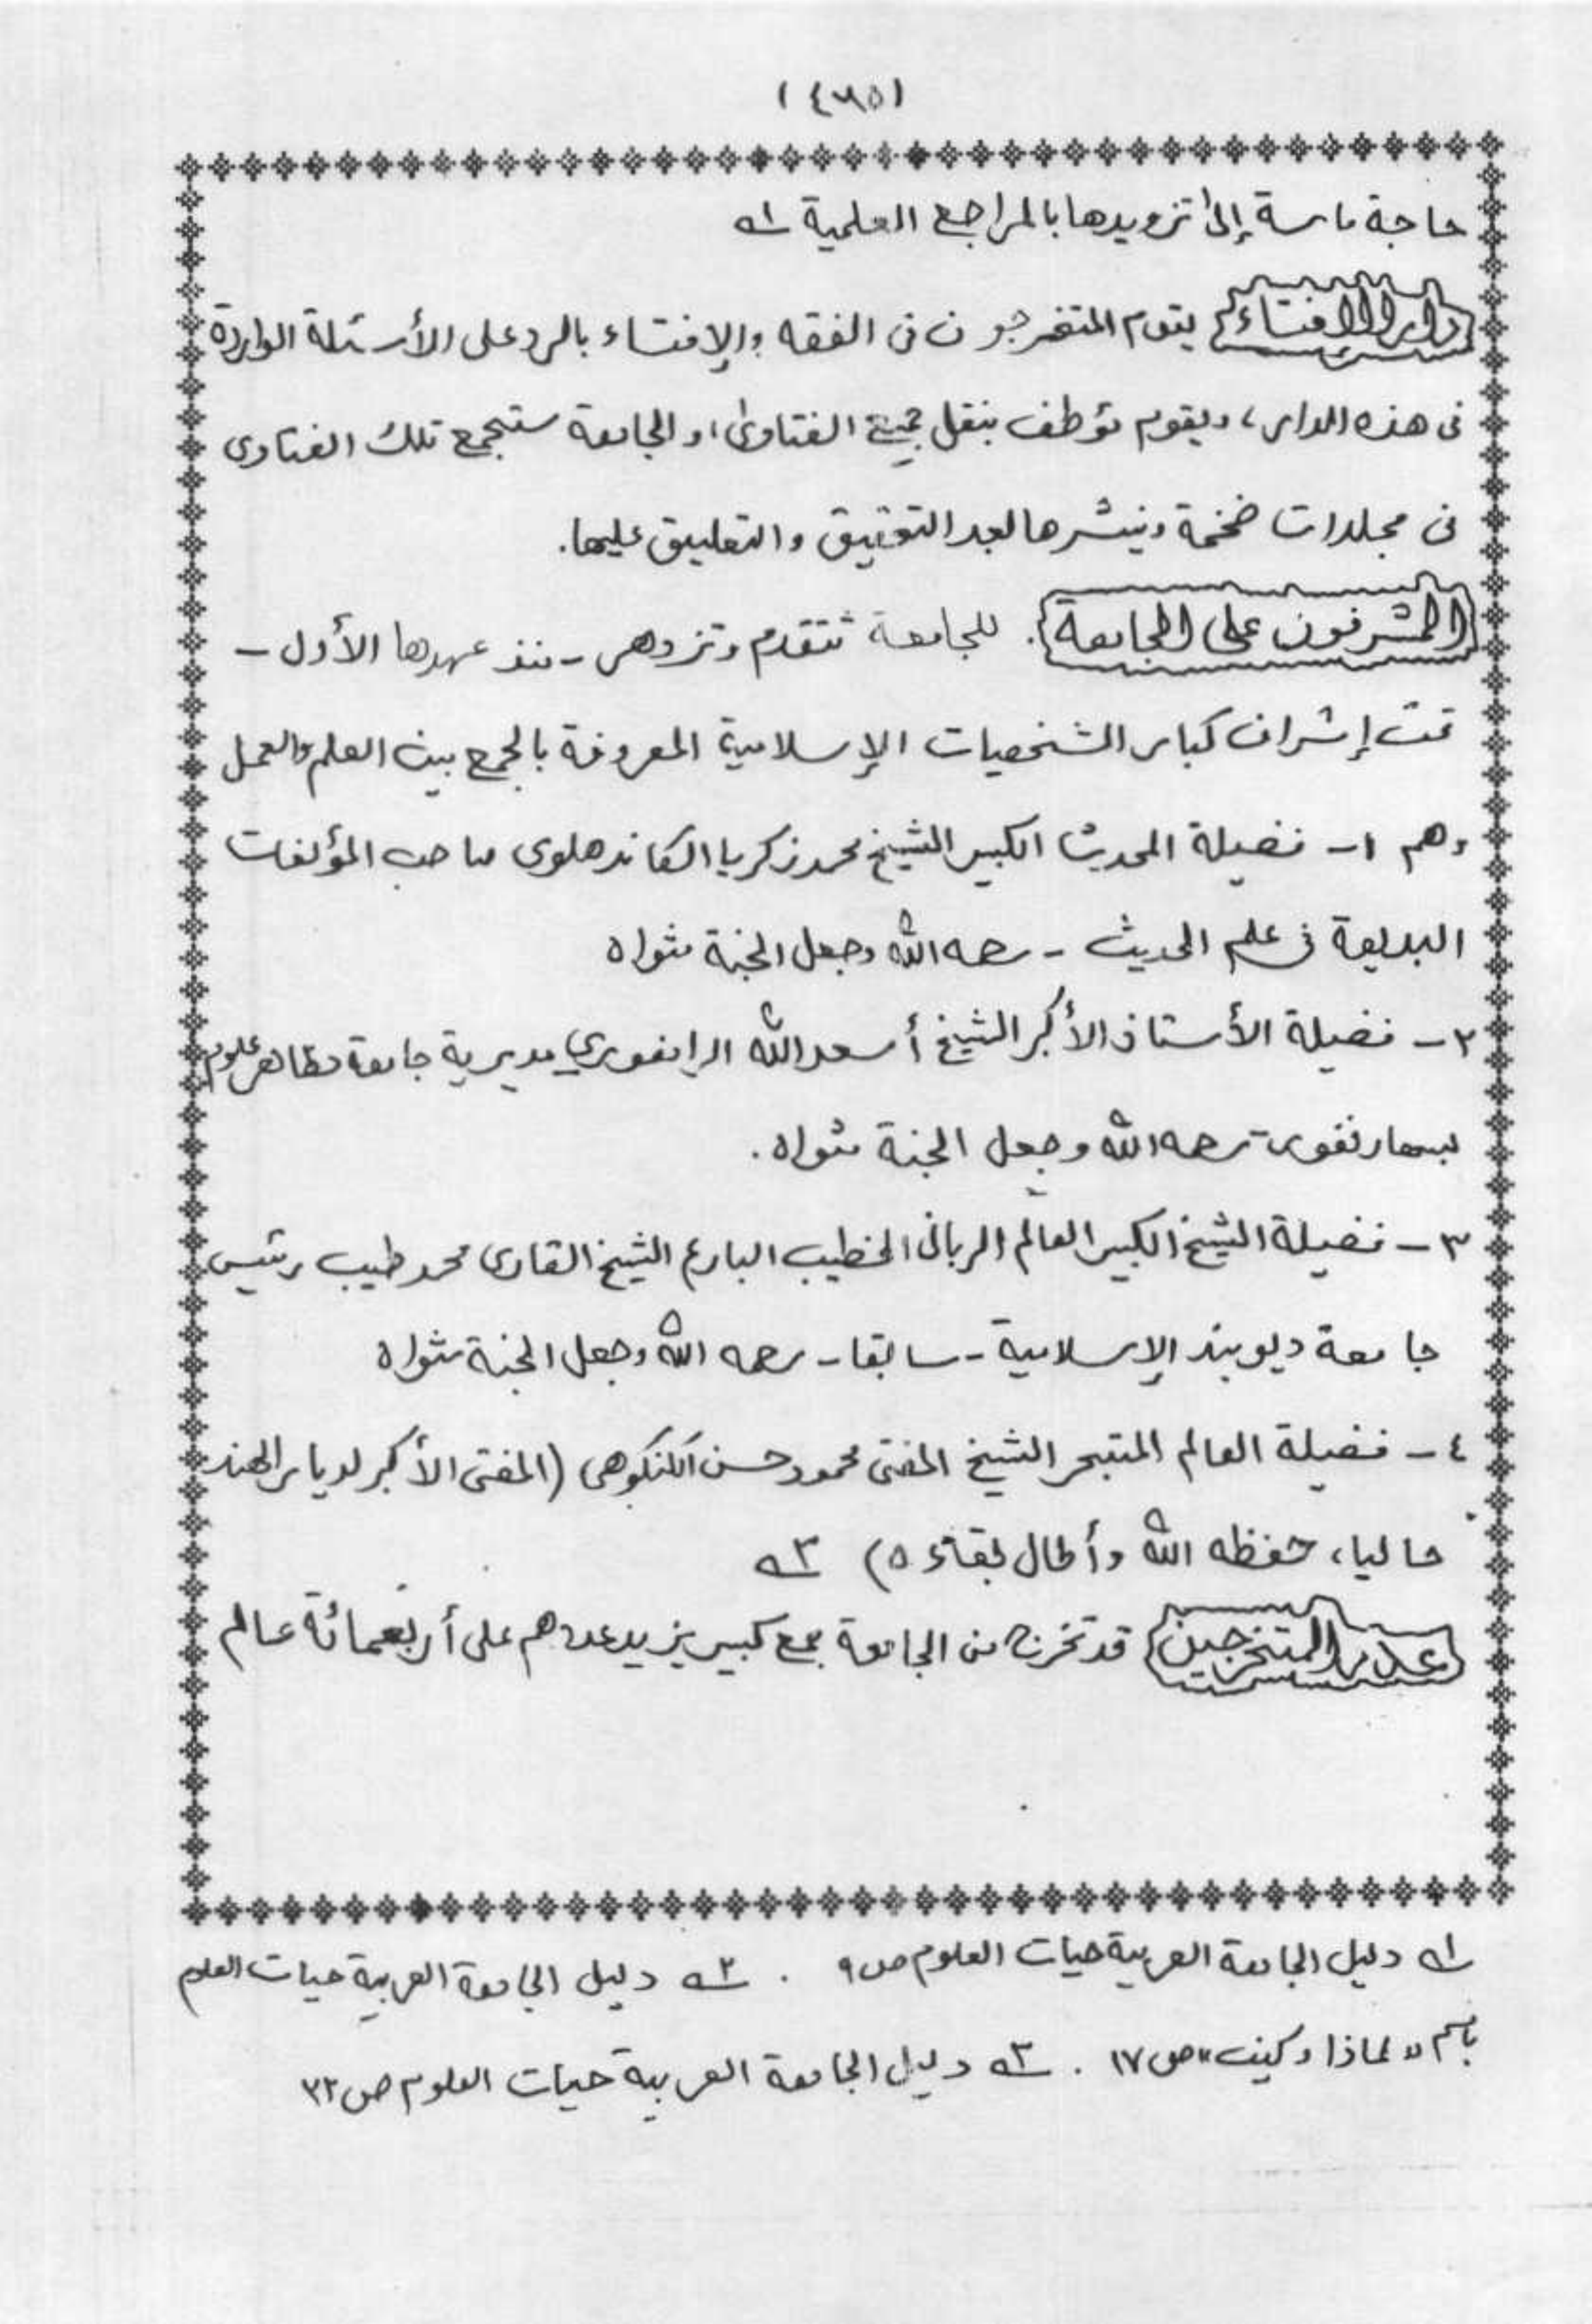 (٤٧٥)
حاجة ماسة إلى تزويدها بالمراجع العلمية ١ـه
دار الإفتاء يقوم المتخرجون فى الفقه والإفتاء بالرد على الأسئلة الواردة
فى هذه الدار، ويقوم مؤظف بنقل جميع الفتاوى، والجامعة ستجمع تلك الفتاوى
فى مجلدات ضخمة وينشرها بعد التحقيق والتعليق عليها.
المشرفون على الجامعة. للجامعة تتقدم وتزدهر - منذ عهدها الأول -
تحت إشراف كبار الشخصيات الإسلامية المعروفة بالجمع بين العلم والعمل
وهم ١- فضيلة المحدث الكبير الشيخ محمد زكريا الكاندهلوى صاحب المؤلفات
البديعة فى علم الحديث - رحمه الله وجعل الجنة مثواه
٢- فضيلة الأستاذ الأكبر الشيخ أسعد الله الرامفوري مديرية جامعة مظاهر علوم
بسهارنفور- رحمه الله وجعل الجنة مثواه.
٣- فضيلة الشيخ الكبير العالم الربانى الخطيب البارع الشيخ القارى محمد طيب رئيس
جامعة ديوبند الإسلامية - سابقا - رحمه الله وجعل الجنة مثواه
٤- فضيلة العالم المتبحر الشيخ المفتى محمود حسن الكنكوهى (المفتى الأكبر لديار الهند
حاليا، حفظه الله وأطال بقاءه) ٣ـه
عدد المتخرجين قد تخرج من الجامعة جمع كبير يزيد عددهم على أربعمائة عالم
١ـه دليل الجامعة العربية حيات العلوم ص ٩ . ٢ـه دليل الجامعة العربية حيات العلوم
باسم "لماذا وكيف" ص ١٧ . ٣ـه دليل الجامعة العربية حيات العلوم ص ٢٢